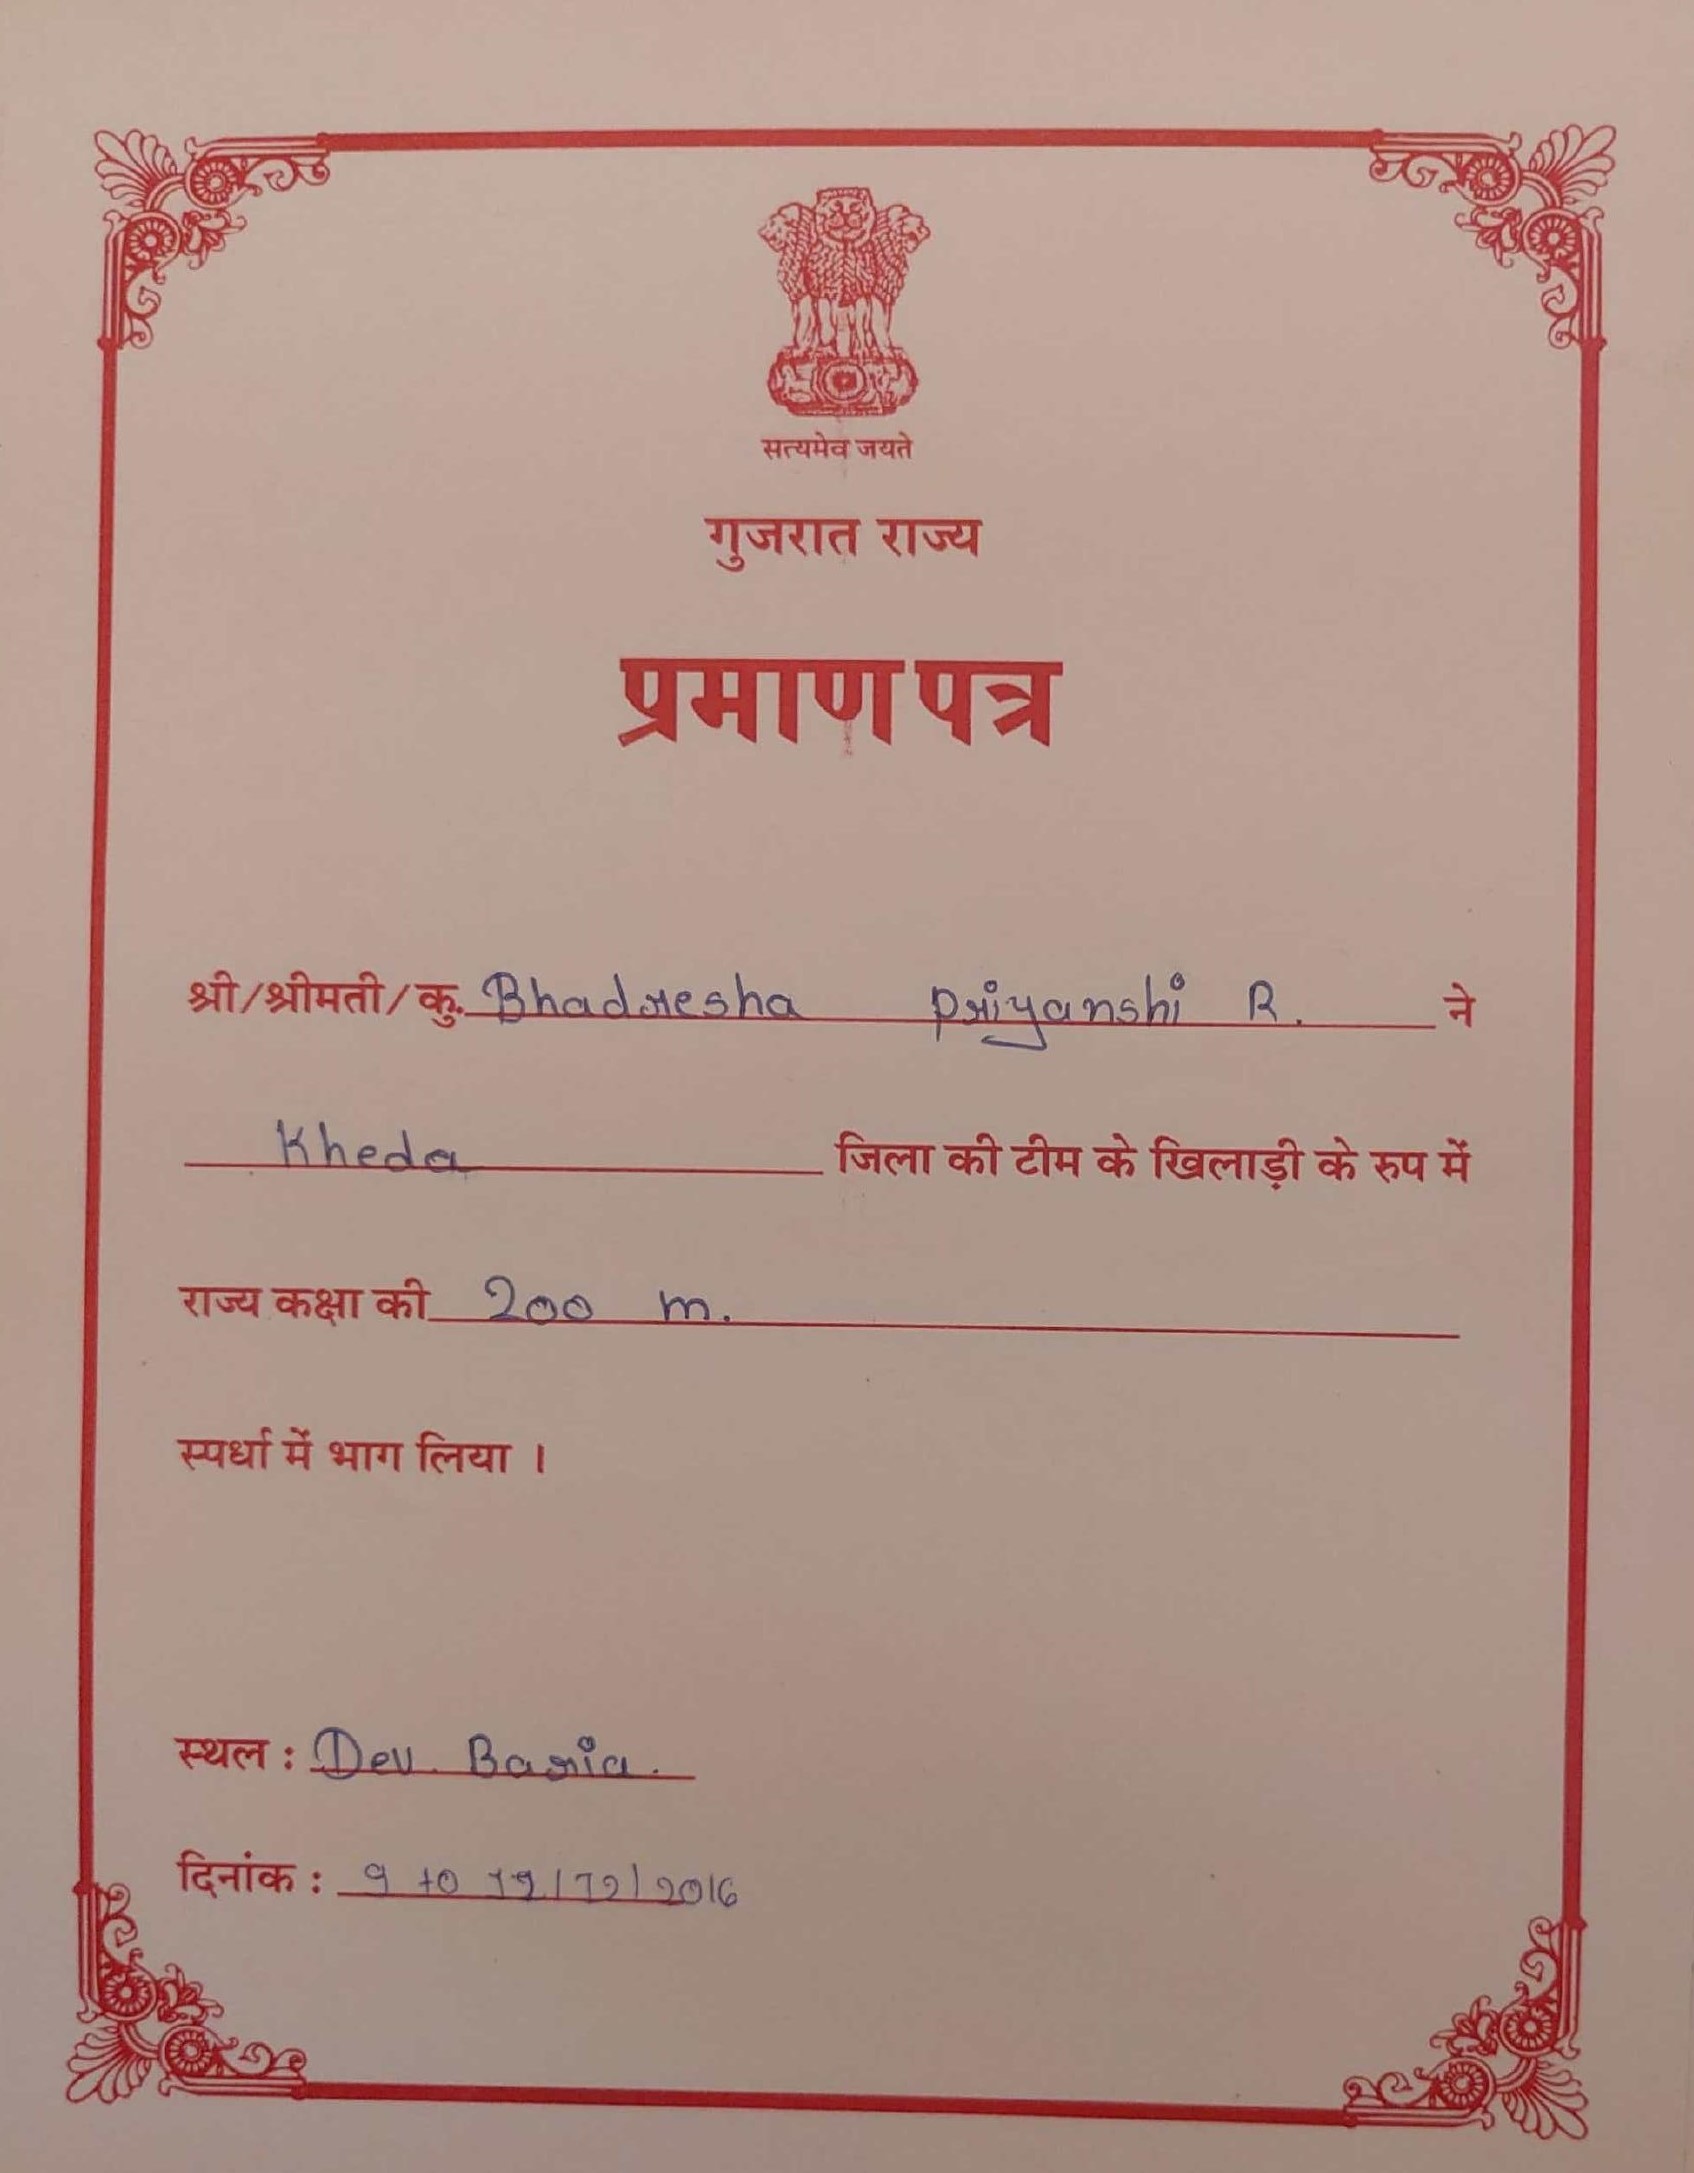 सत्यमेव जयते
गुजरात राज्य
प्रमाणपत्र
श्री/श्रीमती/कु. Bhadresha Priyanshi R. ने
Kheda जिला की टीम के खिलाड़ी के रुप में
राज्य कक्षा की 200 m.
स्पर्धा में भाग लिया ।
स्थल : Dev. Baria.
दिनांक : 9 to 12/2016